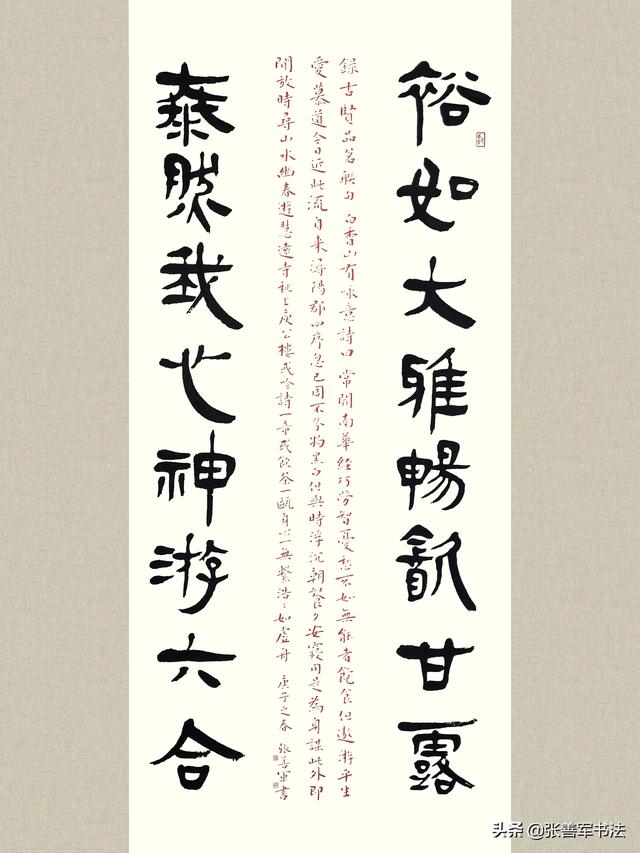 裕如大雅暢㱃甘露
錄古賢品茗聯句 白香山有咏意詩曰 常聞南華經巧勞智憂愁不如無能者飽食但遨游平生
愛慕道今日近此流自来潯陽郡四序忽已周不分物黑白但與時浮沉朝餐夕安寢用是為身謀此外即
閒放時尋山水幽春遊慧遠寺秋上庾公樓或吟詩一章或飲茶一甌身心一無繫浩〻如虛舟 庚子之春 張善軍書
泰然我心神游六合
头条 @张善军书法